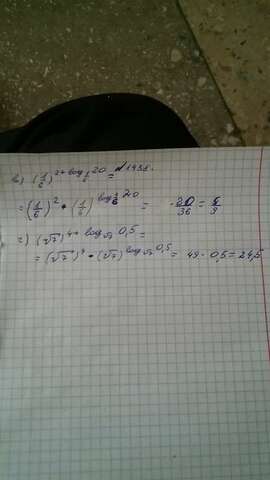 в) (1/6)^(2+log_(1/6) 20) = N1488.
= (1/6)^2 * (1/6)^(log_(1/6) 20) = · 20/36 = 5/9
г) (√7)^(4+log_√7 0,5) =
= (√7)^4 * (√7)^(log_√7 0,5) = 49 · 0,5 = 24,5